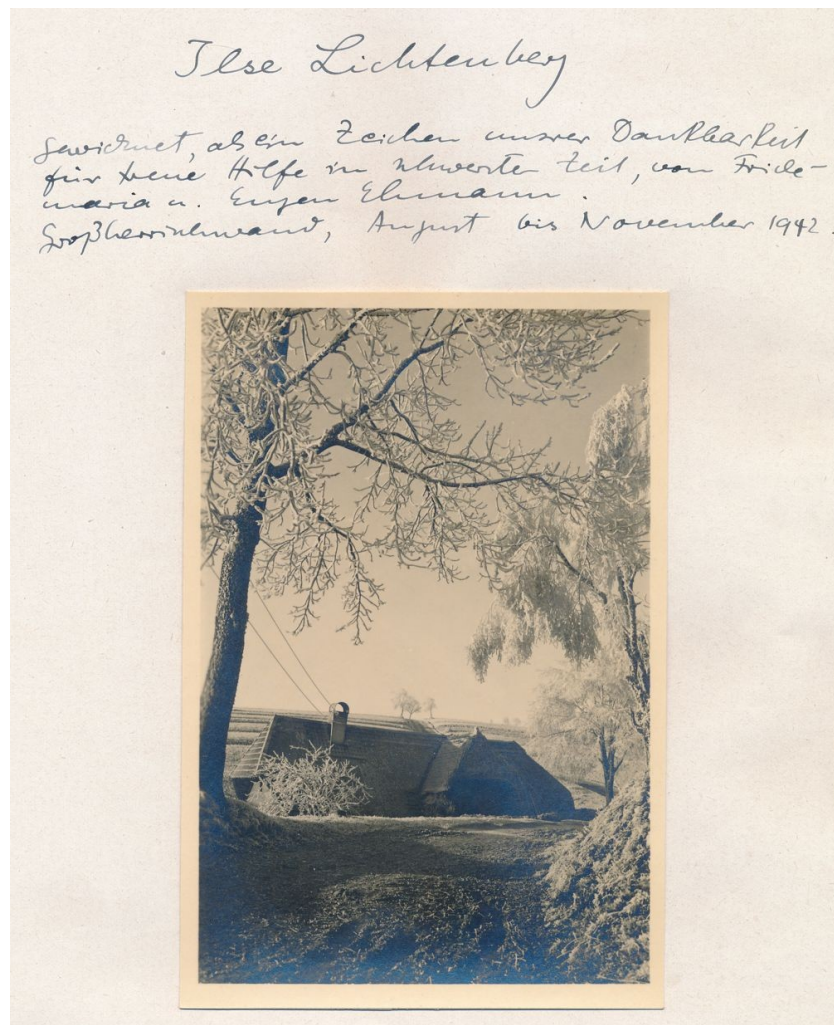 Ilse Lichtenberg
gewidmet, als ein Zeichen unsrer Dankbarkeit
für treue Hilfe in schwerster Zeit, von Friede-
maria u. Eugen Ehmann.
Großherrischwand, August bis November 1942.